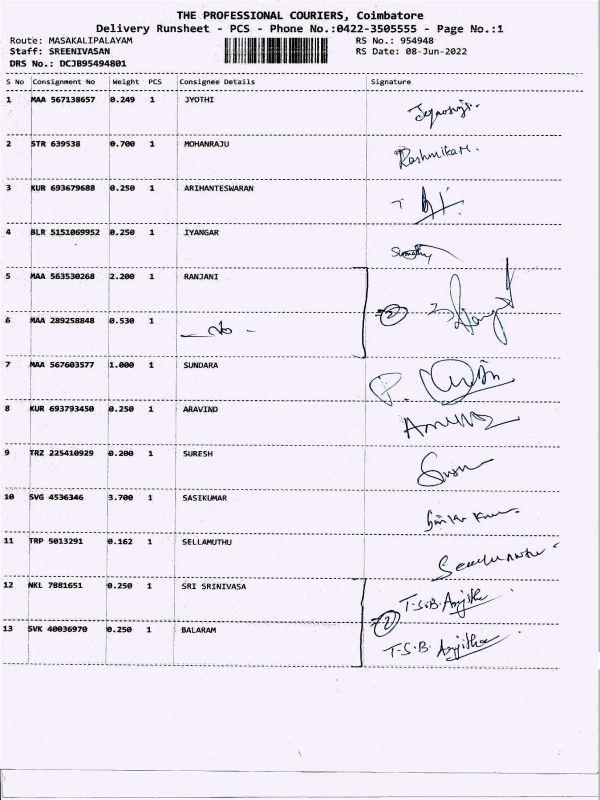 THE PROFESSIONAL COURIERS, Coimbatore
Delivery Runsheet - PCS - Phone No.:0422-3505555 - Page No.:1
Route: MASAKALIPALAYAM RS No.: 954948
Staff: SREENIVASAN RS Date: 08-Jun-2022
DRS No.: DCJB95494801
S No Consignment No Weight PCS Consignee Details Signature
1 MAA 567138657 0.249 1 JYOTHI
2 STR 639538 0.700 1 MOHANRAJU Rashmikam.
3 KUR 693679688 0.250 1 ARIHANTESWARAN
4 BLR 5151069952 0.250 1 IYANGAR
5 MAA 563530268 2.200 1 RANJANI
2
6 MAA 289258848 0.530 1
7 MAA 567603577 1.000 1 SUNDARA
8 KUR 693793450 0.250 1 ARAVIND
9 TRZ 225410929 0.200 1 SURESH
10 SVG 4536346 3.700 1 SASIKUMAR
11 TRP 5013291 0.162 1 SELLAMUTHU
12 NKL 7881651 0.250 1 SRI SRINIVASA T.S.B.
2
13 SVK 40036970 0.250 1 BALARAM T.S.B.